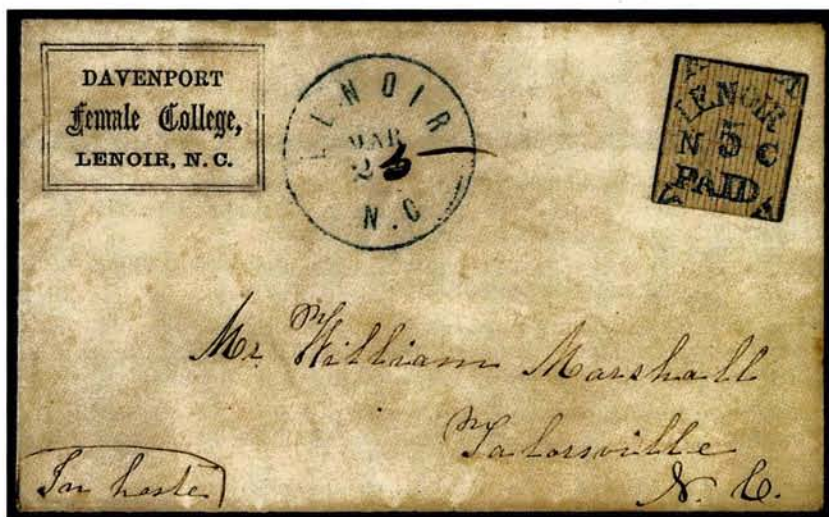 DAVENPORT
Female College,
LENOIR, N. C.
LENOIR
MAR
N.C
LENOIR
N 5 C
PAID
Mr. William Marshall
Talorsville
N. C.
In haste